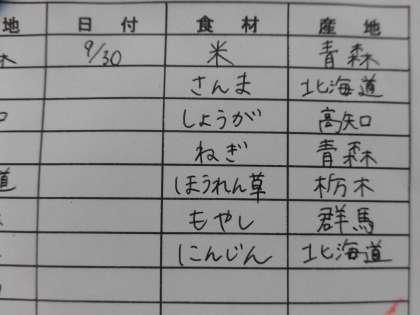 地 日付 食材 産地
木 9/30 米 青森
さんま 北海道
しょうが 高知
ねぎ 青森
道 ほうれん草 栃木
もやし 群馬
にんじん 北海道